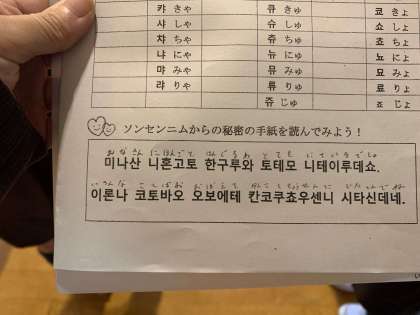 캬 きゃ 큐 きゅ 쿄 きょ
샤 しゃ 슈 しゅ 쇼 しょ
챠 ちゃ 츄 ちゅ 쵸 ちょ
냐 にゃ 뉴 にゅ 뇨 にょ
먀 みゃ 뮤 みゅ 묘 みょ
랴 りゃ 류 りゅ 료 りょ
쥬 じゅ 죠 じょ
ソンセンニムからの秘密の手紙を読んでみよう！
미나산 니혼고토 한구루와 토테모 니테이루데쇼.
이론나 코토바오 오보에테 칸코쿠쵸우센니 시타신데네.